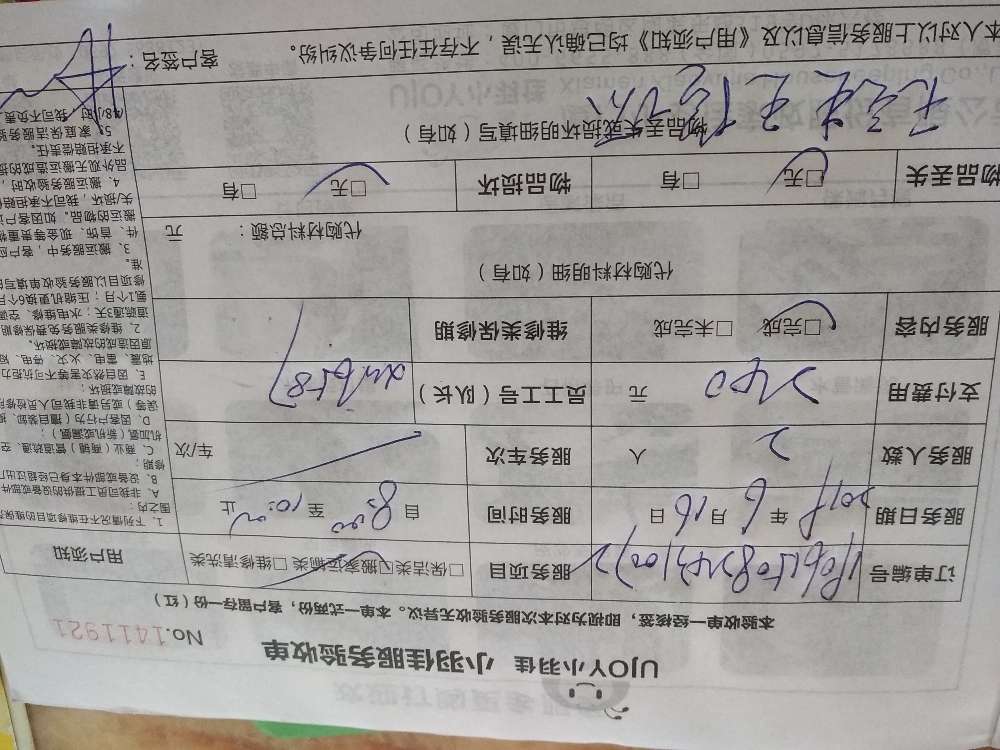 UJOY小羽佳 小羽佳服务验收单
No.1411921
本验收单一经签核，即视为对本次服务验收无异议。本单一式两份，客户留存一份（红）
订单编号
服务项目 □保洁类 □搬家运输类 □维修清洗类
用户须知
服务日期 2018 年 6 月 16 日
服务时间 自 8:00 至 10:00 止
服务人数 2 人
服务车次 车/次
支付费用 240 元
员工工号（队长）
服务内容 □完成 □未完成
维修类保修期
代购材料明细（如有）
代购材料总额： 元
物品丢失 □无 □有
物品损坏 □无 □有
物品丢失或损坏明细填写（如有）
本人对以上服务信息以及《用户须知》均已确认无误，不存在任何争议纠纷。 客户签名：
1、下列情况不在维修项目的维保
围之内：
A、非我司员工提供的设备或部件
B、设备或部件本身已经超过出厂
修期；
C、商业（商铺）管道疏通、空
机加氟（新机或漏氟）；
D、因客户行为（擅自装卸、
误等）或另请非我司人员检修
的故障或损坏；
E、因自然灾害等不可抗力
地震、雷电、火灾、停电、
原因造成的故障或损坏。
2、维修类服务免费保修期
道疏通3天；水电维修、空调
氟1个月；压缩机更换6个月
修项目以服务验收单填写
准。
3、搬运服务中，客户应
件、首饰、现金等贵重物
搬运的物品。如因客户
失/损坏，我司不承担赔
4、搬运服务验收时，
品外观无搬运造成的损
不承担赔偿责任。
5、家庭保洁服务验
48小时，我司不负责